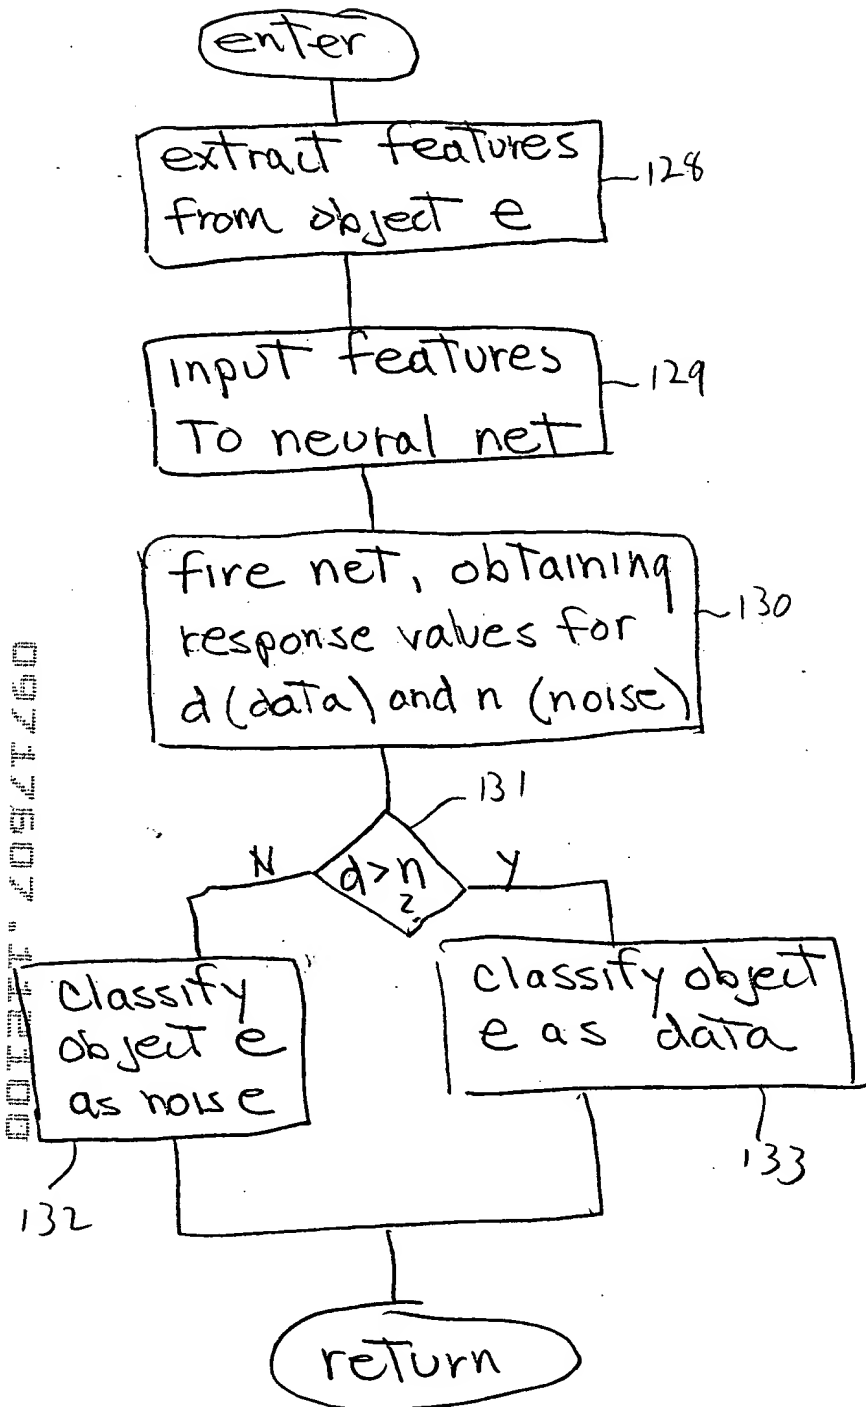 enter
extract features
from object e
128
input features
To neural net
129
fire net, obtaining
response values for
d (data) and n (noise)
130
131
N
d>n
?
Y
classify
object e
as noise
classify object
e as data
132
133
return